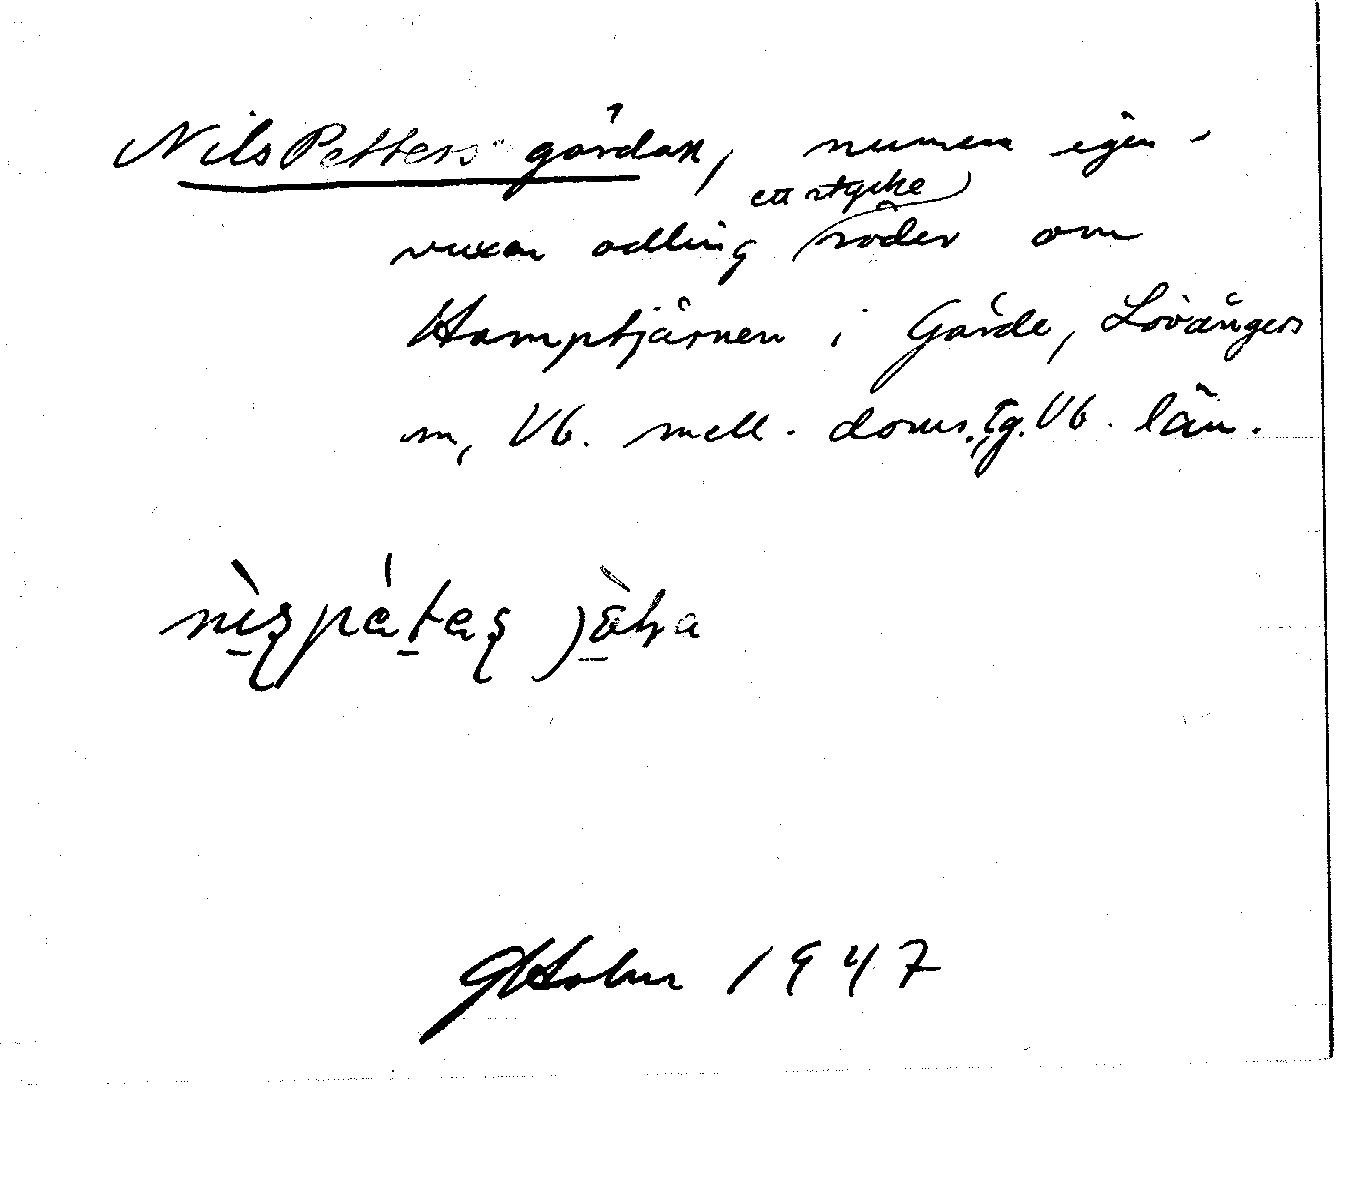 Nils Petters gärdan, numera igen-
vuxen odling ett stycke söder om
Hamptjärnen i Gärde, Lövångers
sn, Vb. mell. doms. tg. Vb. län.
G Holm 1947